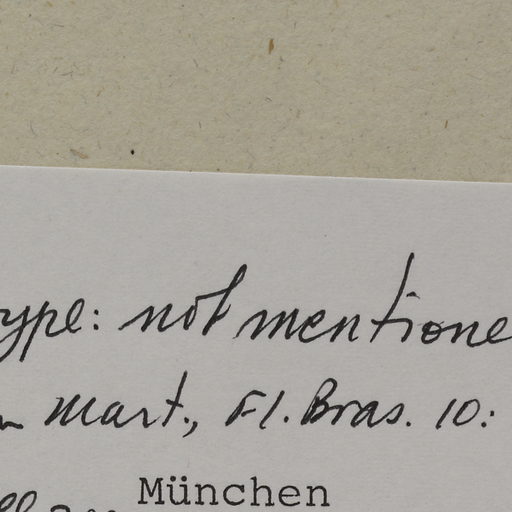 ype: not mentione
n Mart., Fl. Bras. 10:
München